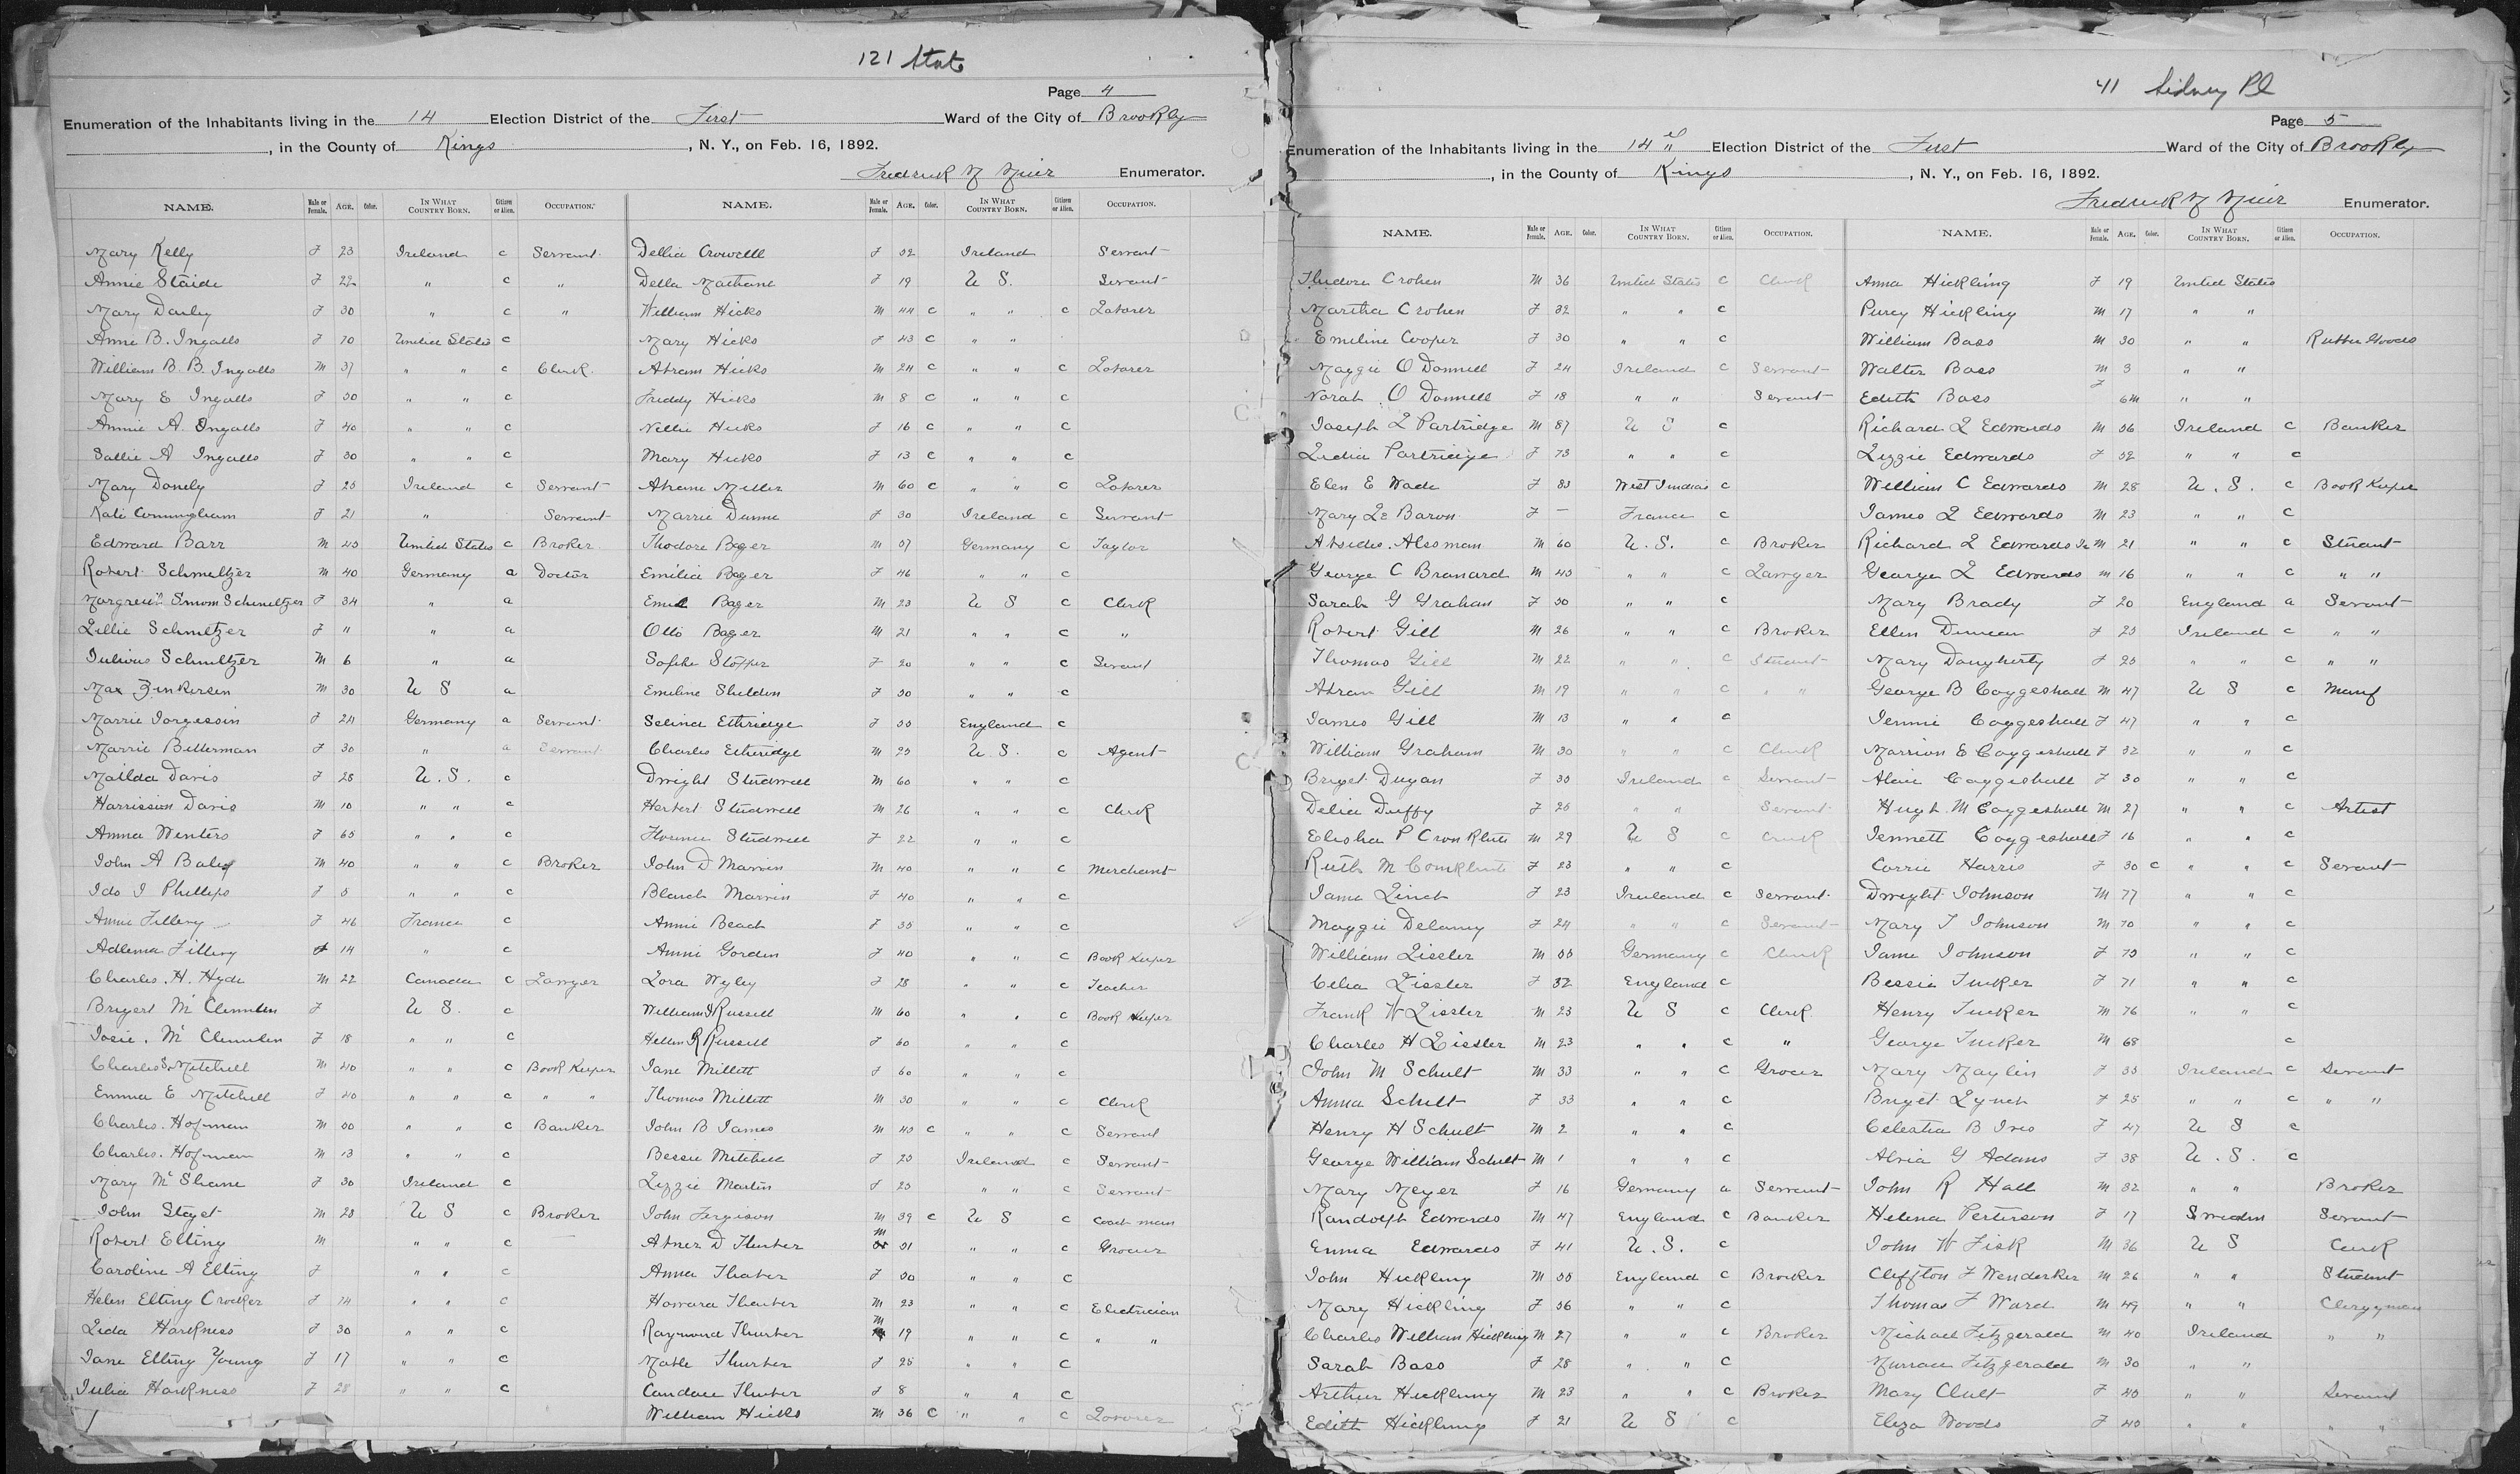 121 State
Page 4
Enumeration of the Inhabitants living in the 14 Election District of the First Ward of the City of Brookly
, in the County of Kings , N. Y., on Feb. 16, 1892.
Fredrick M Muir Enumerator.
NAME. Male or Female. AGE. Color. IN WHAT COUNTRY BORN. Citizen or Alien. OCCUPATION.
Mary Kelly F 23 Ireland c Servant
Annie Staide F 22 " c "
Mary Darley F 30 " c "
Anne B. Ingalls F 70 United States c
William B. B. Ingalls M 37 " " c Clerk
Mary E Ingalls F 30 " " c
Annie A. Ingalls F 40 " " c
Sallie A Ingalls F 30 " " c
Mary Donely F 25 Ireland c Servant
Kate Cunningham F 21 " Servant
Edward Barr M 45 United States c Broker
Robert Schmeltzer M 40 Germany a Doctor
Schmeltzer F 34 " a
Lillie Schmeltzer F 11 " a
Julious Schmeltzer M 6 " a
Max Zinkersen M 30 U S a
Marrie Jorgessin F 24 Germany a Servant
Marrie Bitterman F 30 " a Servant
Matilda Davis F 28 U. S. c
Harrission Davis M 10 " " c
Anna Winters F 65 " " c
John A M 40 " " c Broker
Ido I Phillips F 5 " " c
Annie Fillery F 46 France c
Adlema Fillery F 14 " c
Charles. H. Hyde M 22 Canada c Lawyer
Brigert Mc F U S. c
Josie. Mc F 18 " " c
Charles S. Mitchell M 40 " " c Book Keeper
Emma E Mitchell F 40 " " c " "
Charles. Hofman M 50 " " c Banker
Charles. Hofman M 13 " " c
Mary Mc Shane F 30 Ireland c
John Stayet M 28 U S c Broker
Robert Elting M " " c
Caroline A Elting F " " c
Helen Elting Crocker F 14 " " c
Lida Harkness F 30 " " c
Jane Elting Young F 17 " " c
Julia Harkness F 28 " " c
NAME. Male or Female. AGE. Color. IN WHAT COUNTRY BORN. Citizen or Alien. OCCUPATION.
Dellia Crowell F 52 Ireland Servant
Della Mathane F 19 U S. Servant
William Hicks M 44 c " " c Laborer
Mary Hicks F 43 c " "
Abram Hicks M 24 c " " c Laborer
Freddy Hicks M 8 c " " c
Nellie Hicks F 16 c " " c
Mary Hicks F 13 c " " c
Abram Miller M 60 c " " c Laborer
Marrie Dunne F 30 Ireland c Servant
Thodore Bager M 57 Germany c Taylor
Emilia Bager F 46 " " c
Emil Bager M 23 U S c Clerk
Otto Bager M 21 " " c "
Sophie Stopper F 20 " " c Servant
Emeline Sheldon F 50 " " c
Selina Ethridge F 55 England c
Charles Etheridge M 25 U S. c Agent
Dwight Studwell M 60 " " c
Herbert Studwell M 26 " " c Clerk
Florence Studwell F 22 " " c
John D Marvin M 40 " " c Merchant
Blanch Marvin F 40 " " c
Annie Beach F 35 " " c
Annie Gorden F 40 " " c Book Keeper
Lora Wyley F 28 " " c Teacher
William J Russell M 60 " " c Book Keeper
Hellen R Russell F 60 " " c
Jane Millett F 60 " " c
Thomas Millett M 30 " " c Clerk
John B James M 45 c " " c Servant
Bessie Mitchell F 25 Ireland c Servant
Lizzie Martin F 25 " " c Servant
John Fergison M 39 c U S c Coach man
Abner D Thurber M 51 " " c Grocer
Anna Thurber F 50 " " c
Howard Thurber M 23 " " c Electrician
Raymond Thurber M 19 " " c " "
Mable Thurber F 25 " " c
Candace Thurber F 8 " " c
William Hicks M 36 c " " c Laborer
41 Sidney Pl
Page 5
Enumeration of the Inhabitants living in the 14 Election District of the First Ward of the City of Brookly
, in the County of Kings , N. Y., on Feb. 16, 1892.
Fredrick M Muir Enumerator.
NAME. Male or Female. AGE. Color. IN WHAT COUNTRY BORN. Citizen or Alien. OCCUPATION.
Thedore Crohen M 36 United States c Clerk
Martha Crohen F 32 " " c
Emeline Cooper F 30 " " c
Maggie O Donnell F 24 Ireland c Servant
Norah O Donnell F 18 " " Servant
Joseph L Partridge M 87 U S c
Lidia Partridge F 73 " " c
Elen E Wade F 83 West Indias c
Mary Le Baron F — France c
Alssman M 60 U. S. c Broker
George C Branard M 45 " " c Lawyer
Sarah G Graham F 50 " " c
Robert Gill M 26 " " c Broker
Thomas Gill M 22 " " c Student
Abram Gill M 19 " " c " "
James Gill M 13 " " c
William Graham M 30 " " c Clerk
Briget Dugan F 35 Ireland c Servant
Delia Duffy F 25 " " Servant
Elisha P Cronkhite M 29 U S c Clerk
Ruth M F 23 " " c
Jane Linch F 23 Ireland c Servant
Maggie Delamy F 24 " " c Servant
William Lissler M 55 Germany c Clerk
Celia Lissler F 52 England c
Frank W Lissler M 23 U S c Clerk
Charles H Lissler M 23 " " c "
John M Schult M 33 " " c Grocer
Anna Schult F 33 " " c
Henry H Schult M 2 " " c
George William Schult M 1 " " c
Mary Meyer F 16 Germany a Servant
Randolph Edwards M 47 England c Banker
Emma Edwards F 41 U. S. c
John Hickling M 55 England c Brocker
Mary Hickling F 56 " " c
Charles William Hickling M 27 " " c Broker
Sarah Bass F 28 " " c
Arthur Hickling M 23 " " c Broker
Edith Hickling F 21 U S c
NAME. Male or Female. AGE. Color. IN WHAT COUNTRY BORN. Citizen or Alien. OCCUPATION.
Anna Hickling F 19 United States
Percy Hickling M 17 " "
William Bass M 30 " " Rubber Goods
Walter Bass M 3 " "
Edith Bass F 6m " "
Richard L Edwards M 56 Ireland c Banker
Lizzie Edwards F 52 " " c
William C Edwards M 28 U. S. c Book Keeper
James L Edwards M 23 " " c
Richard L Edwards Jr M 21 " " c Student
George L Edwards M 16 " " c " "
Mary Brady F 20 England a Servant
Ellen Duncan F 25 Ireland c " "
Mary Daugherty F 25 " " c " "
George B Coggeshall M 47 U S c Manf
Jennie Coggeshall F 47 " " c
Marrion E Coggeshall F 32 " " c
Alice Coggeshall F 30 " " c
Hugh M Coggeshall M 27 " " c Artist
Jennett Coggeshall F 16 " " c
Carrie Harris F 30 c " " c Servant
Dwight Johnson M 77 " " c
Mary T Johnson M 70 " " c
Jane Johnson F 75 " " c
Bessie Tucker F 71 " " c
Henry Tucker M 76 " " c
George Tucker M 68 c
Mary Maylin F 35 Ireland c Servant
Briget Lynch F 25 " " c " "
Celestia B Ives F 47 U S c
Alvia G Adams F 38 U. S. c
John R Hall M 32 " " Broker
Helena Perterson F 17 Sweden Servant
John W Fisk M 36 U S Clerk
Cleffton F Wenderker M 26 " " Student
Thomas F Ward M 49 " " Clergyman
Michael Fitzgerald M 40 Ireland " "
Fitzgerald M 30 " "
Mary Clult F 40 " " Servant
Eliza Woods F 40 " " "